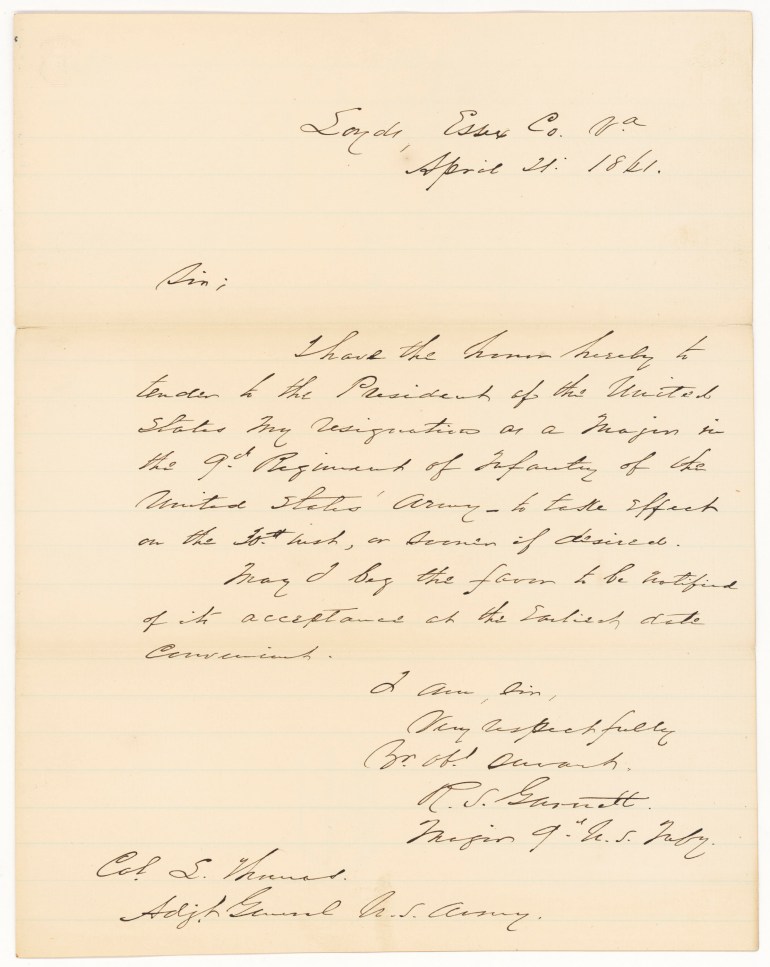 Loyds, Essex Co. Va
April 21. 1861.
Sir;
I have the honor hereby to
tender to the President of the United
States my resignation as a Major in
the 9th Regiment of Infantry of the
United States' Army – to take effect
on the 30th inst, or sooner if desired.
May I beg the favor to be notified
of its acceptance at the Earliest date
convenient.
I am, Sir,
Very respectfully
Yr. obt. servant.
R. S. Garnett.
Major 9th U. S. Infy.
Col. L. Thomas.
Adjt. General U. S. Army.